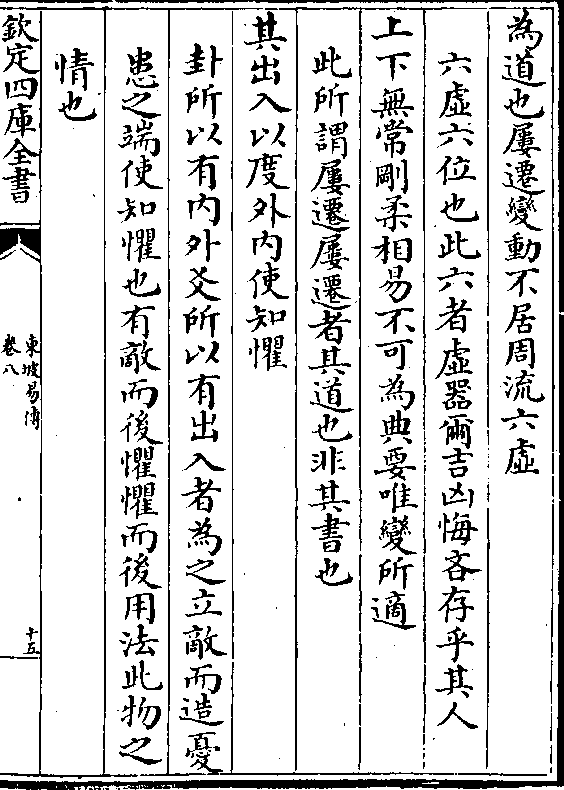 為道也屢遷變動不居周流六虛
六虛六位也此六者虛器爾吉凶悔吝存乎其人
上下無常剛柔相易不可為典要唯變所適
此所謂屢遷屢遷者其道也非其書也
其出入以度外内使知懼
卦所以有内外爻所以有出入者為之立敵而造憂
患之端使知懼也有敵而後懼懼而後用法此物之
情也
欽定四庫全書
東坡易傳
卷八
十五